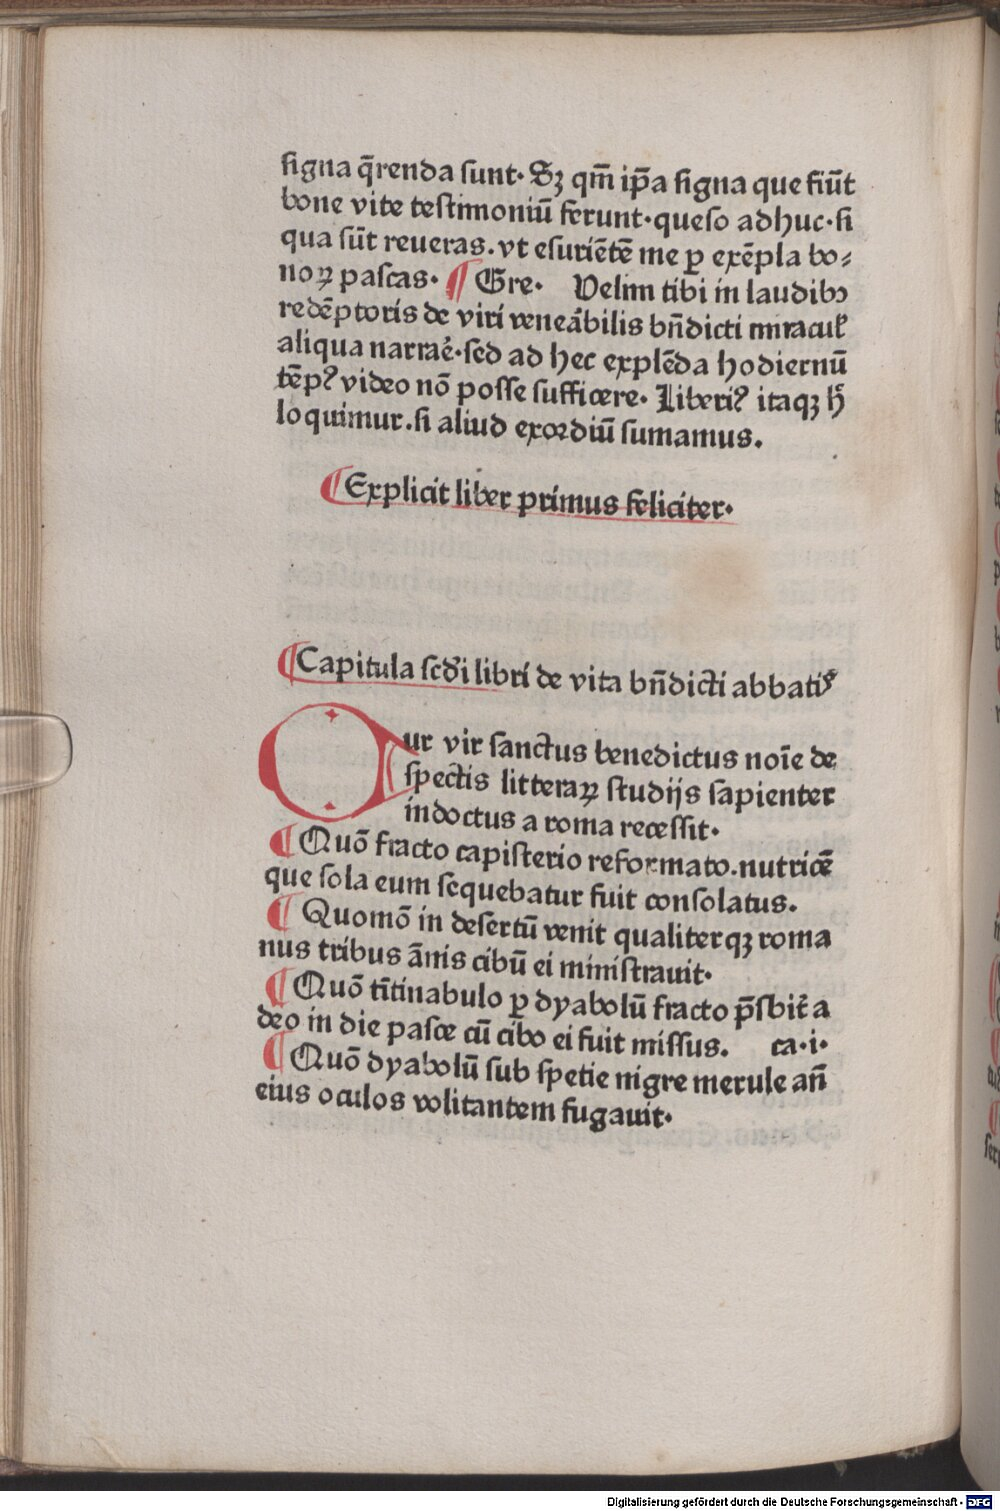 signa q̄renda sunt. Sꝫ qm̄ ip̄a signa que fiūt
bone vite testimoniū ferunt. queso adhuc. si
qua sūt reueras. vt esuriētē me ꝑ exēpla bo⸗
noꝝ pascas. ¶ Gre. Velim tibi in laudibꝰ
redēptoris de viri veneābilis bn̄dicti miracul̕
aliqua narrar̄e. sed ad hec explēda hodiernū
tēpꝰ video nō posse sufficere. Liberiꝰ itaqꝫ h̄
loquimur. si aliud exordiū sumamus.
¶ Explicit liber primus feliciter.
¶ Capitula scd̄i libri de vita bn̄dicti abbatis
Cur vir sanctus benedictus noīe de
spectis litteraꝝ studijs sapienter
indoctus a roma recessit.
¶ Quō fracto capisterio reformato. nutricē
que sola eum sequebatur fuit consolatus.
¶ Quomō in desertū venit qualiterqꝫ roma
nus tribus ānis cibū ei ministrauit.
¶ Quō tītinabulo ꝑ dyabolū fracto p̄sbit̄ a
deo in die pasce cū cibo ei fuit missus. ca. i.
¶ Quō dyabolū sub spetie nigre merule an̄
eius oculos volitantem fugauit.
Digitalisierung gefördert durch die Deutsche Forschungsgemeinschaft - DFG